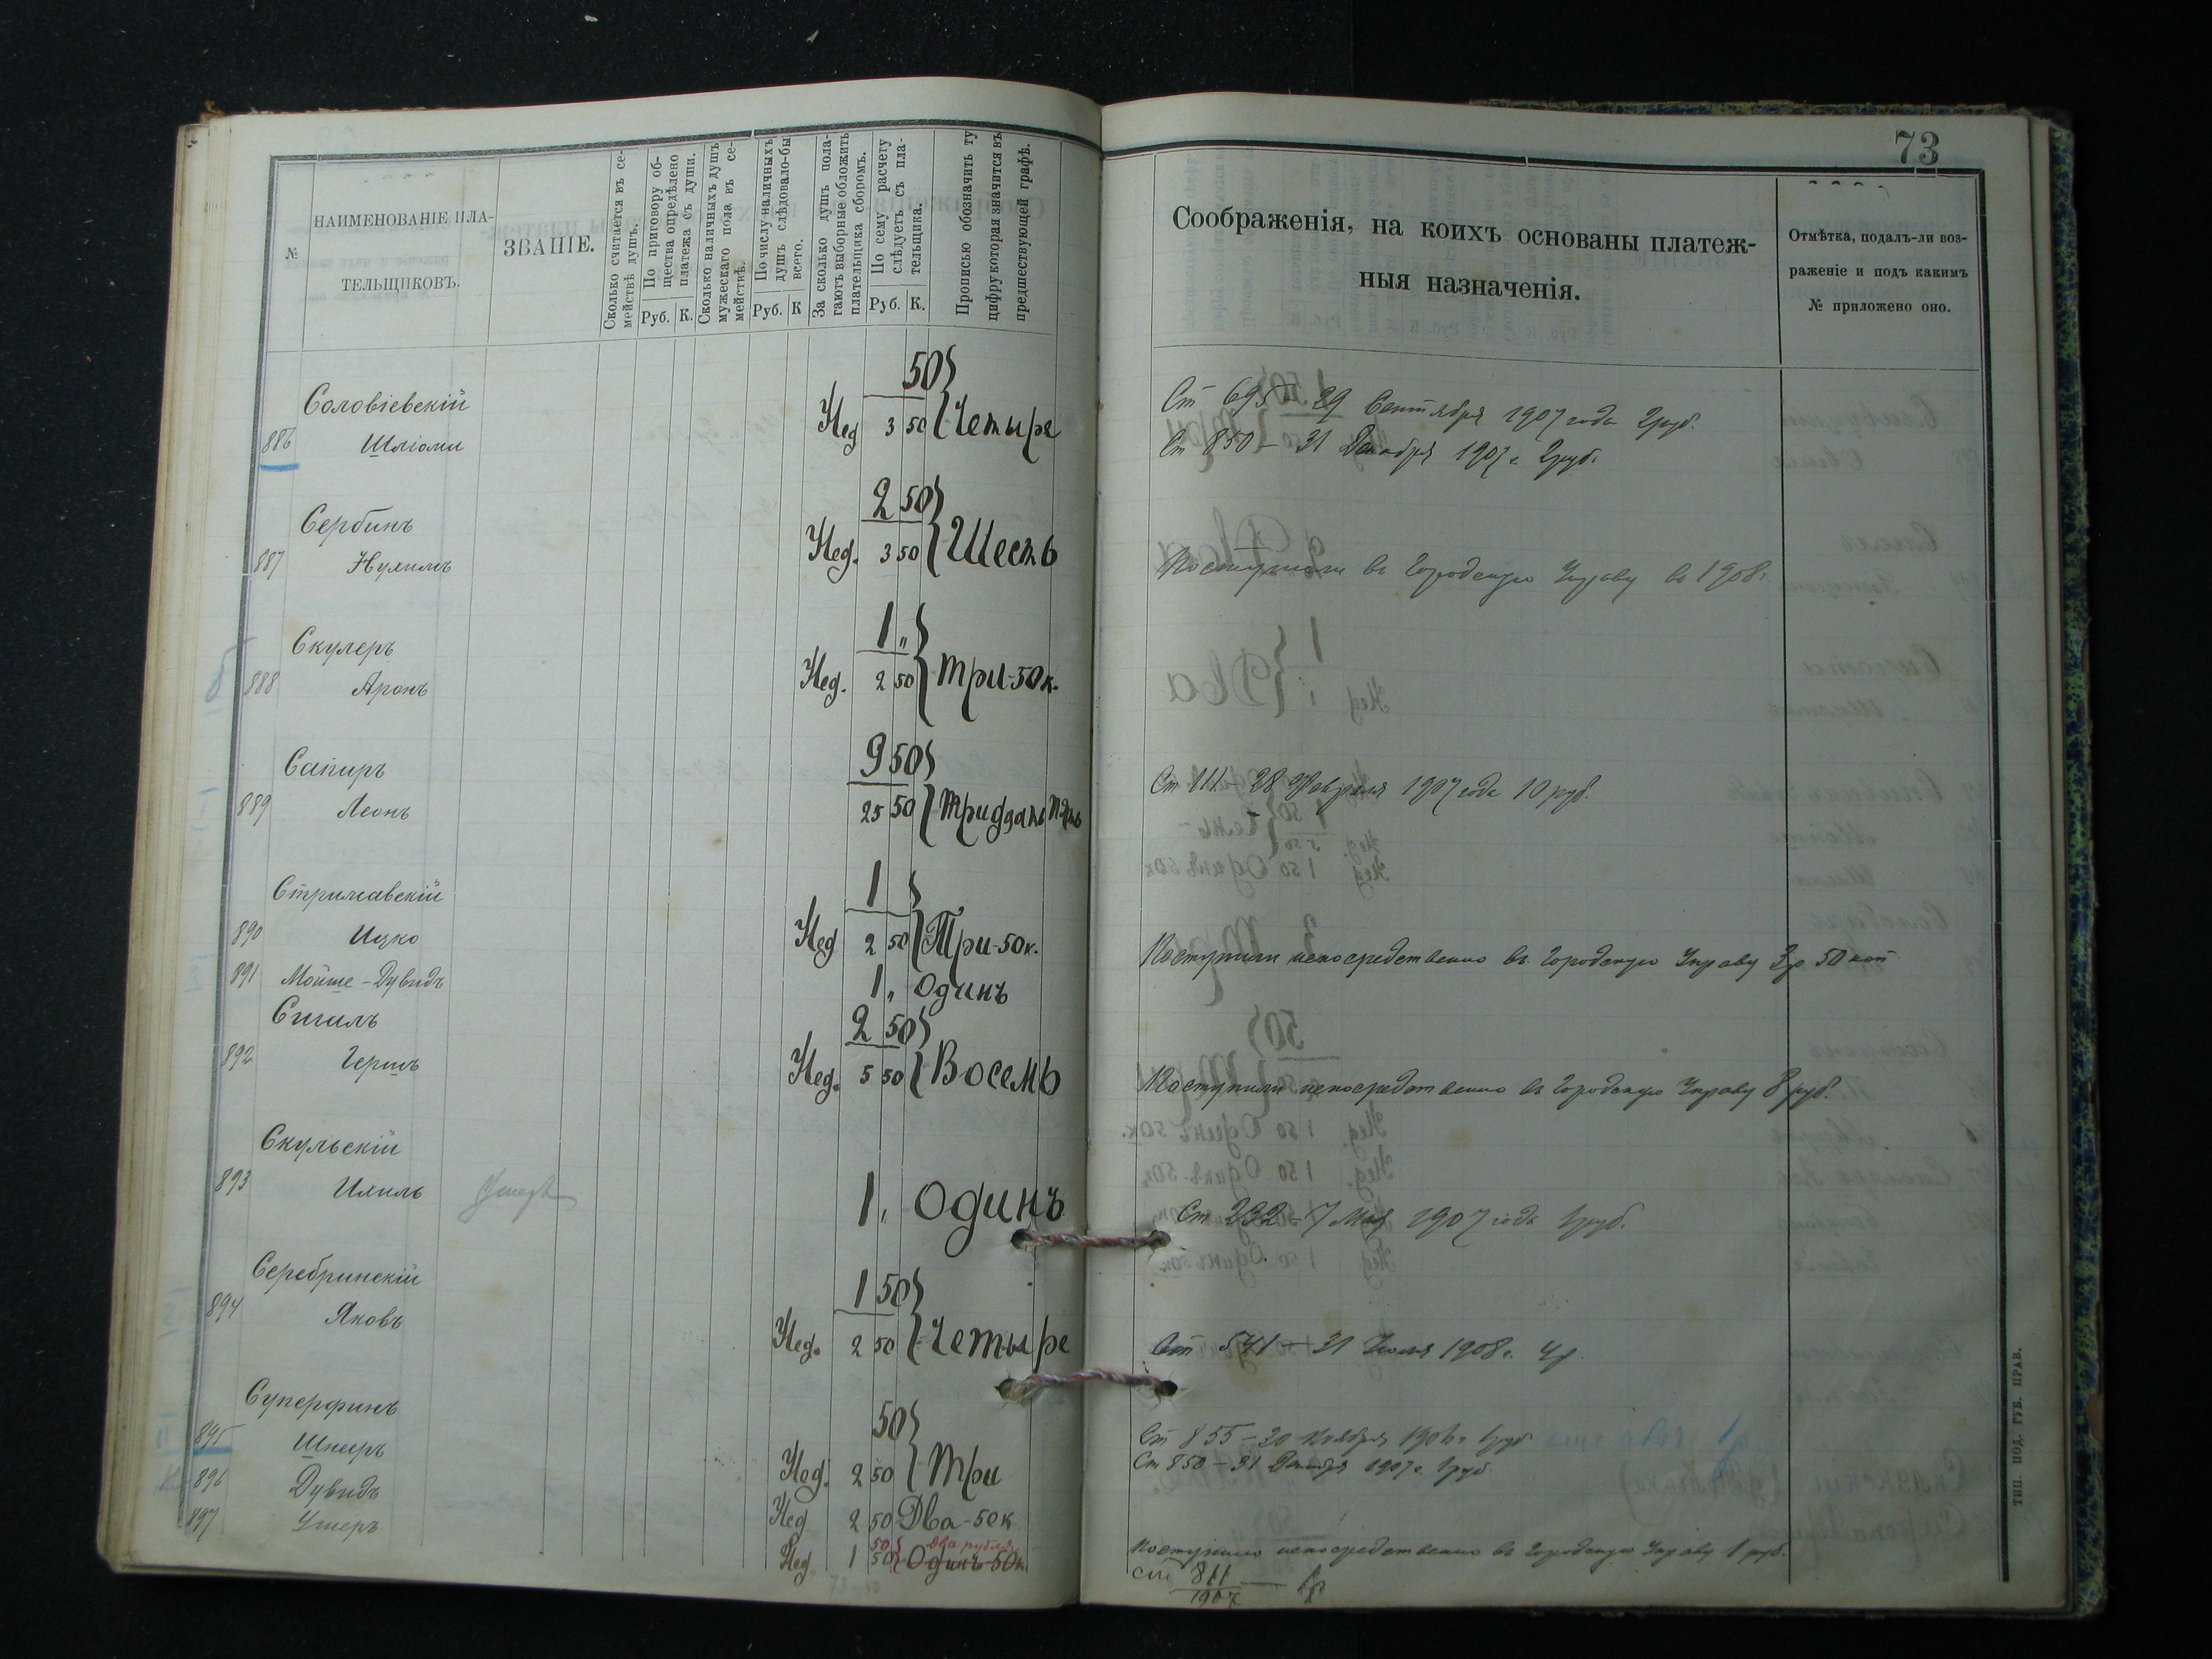 73
№
НАИМЕНОВАНІЕ ПЛА-
ТЕЛЬЩИКОВЪ.
ЗВАНІЕ.
Сколько считается въ се-
мействѣ душъ.
По приговору об-
щества опредѣлено
платежа съ души.
Руб. К.
Сколько наличныхъ душъ
мужескаго пола въ се-
мействѣ.
По числу наличныхъ
душъ слѣдовало-бы
всего.
Руб. К
За сколько душъ пола-
гаютъ выборные обложить
плательщика сборомъ.
По сему расчету
слѣдуетъ съ пла-
тельщика.
Руб. К.
Прописью обозначить ту
цифру которая значится въ
предшествующей графѣ.
50
Соловіевскій
886 Шліоми Нед 3 50 Четыре
2 50
Сербинъ
887 Нухимъ Нед. 3 50 Шесть
1 „
Скулеръ
888 Аронъ Нед. 2 50 Три-50к.
9 50
Сапиръ
889 Леонъ 25 50 Тридцать пять
1
Стрижавскій
890 Ицко Нед 2 50 Три-50к.
891 Мойше-Дувидъ 1 „ Одинъ
Сигалъ 2 50
892 Гершъ Нед. 5 50 Восемь
Скульскій
893 Ихиль Умеръ 1 „ Одинъ
Серебринскій 1 50
894 Яковъ Нед. 2 50 Четыре
Суперфинъ 50
895 Шнееръ Нед. 2 50 Три
896 Дувидъ Нед 2 50 Два-50к
897 Ушеръ Нед. 1 50 Одинъ 50к
50 два рубля
Соображенія, на коихъ основаны платеж-
ныя назначенія.
Отмѣтка, подалъ-ли воз-
раженіе и подъ какимъ
№ приложено оно.
Ст 695 - 29 Сентября 1907 года 2руб.
Ст 850 - 31 Декабря 1907 г. 2руб.
Поступили въ Городскую Управу въ 1908 г.
Ст 111 - 28 Февраля 1907 года 10 руб.
Поступили непосредственно въ Городскую Управу 3р 50 коп
Поступили непосредственно въ Городскую Управу 8 руб.
Ст 232 - 7 Мая 1907 года 1руб.
Ст 541 - 31 Июля 1908 г. 4р.
Ст 855 - 30 Ноября 1906 г 1руб
Ст 850 - 31 Декабря 1907 г. 1руб
Поступило непосредственно въ Городскую Управу 1 руб.
ст 811
1907
ТИП. ПОД. ГУБ. ПРАВ.